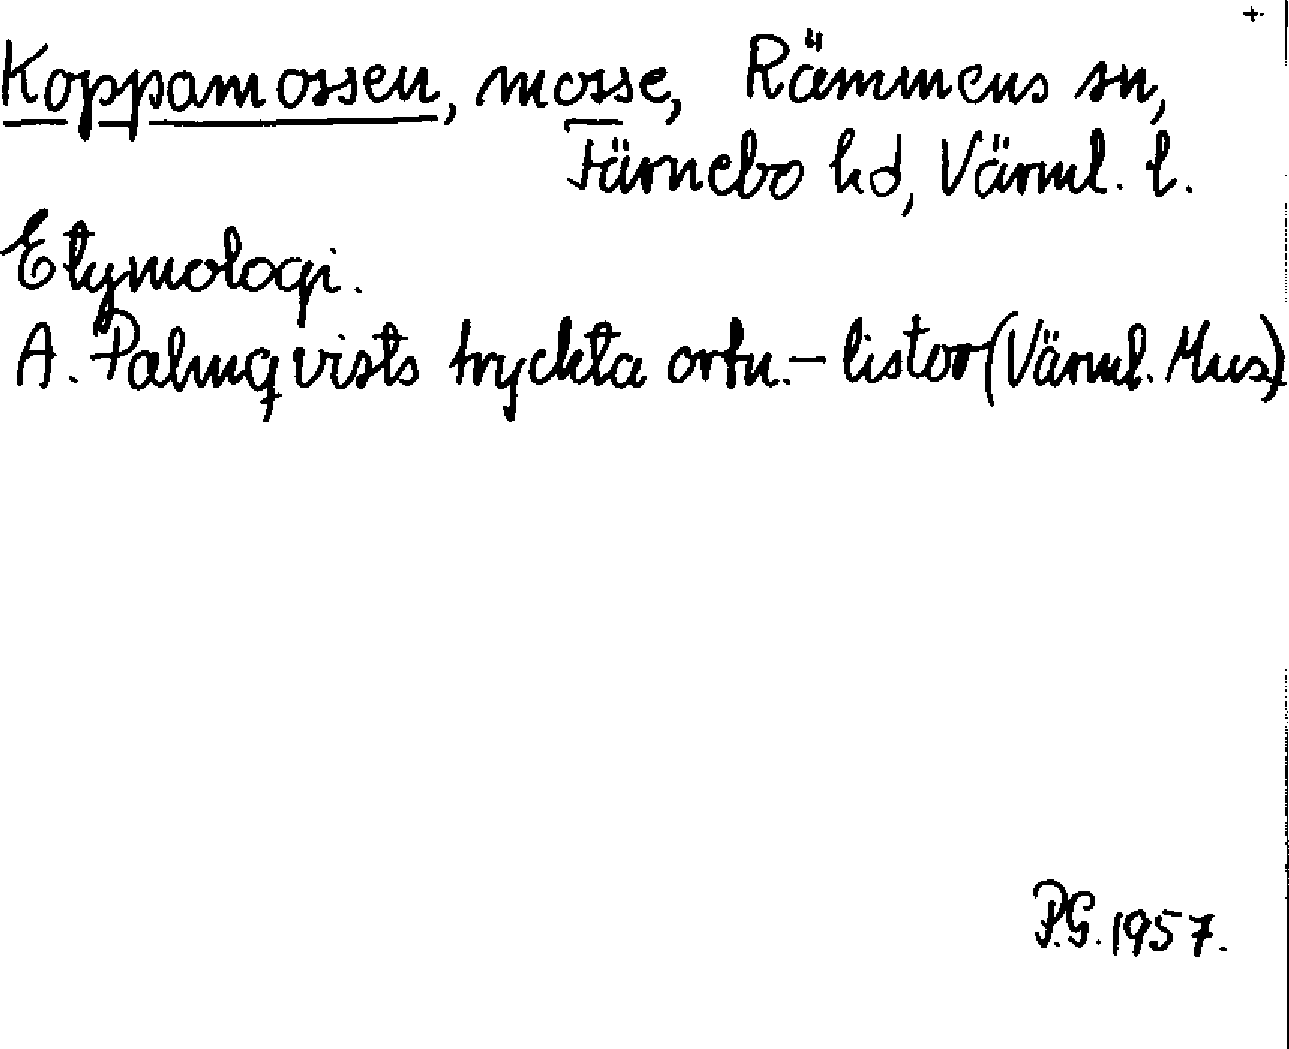 +
Koppamossen, mosse, Rämmens sn,
Färnebo hd, Värml. l.
Etymologi.
A. Palmqvists tryckta ortn.-listor (Värml. Mus)
P.G. 1957.